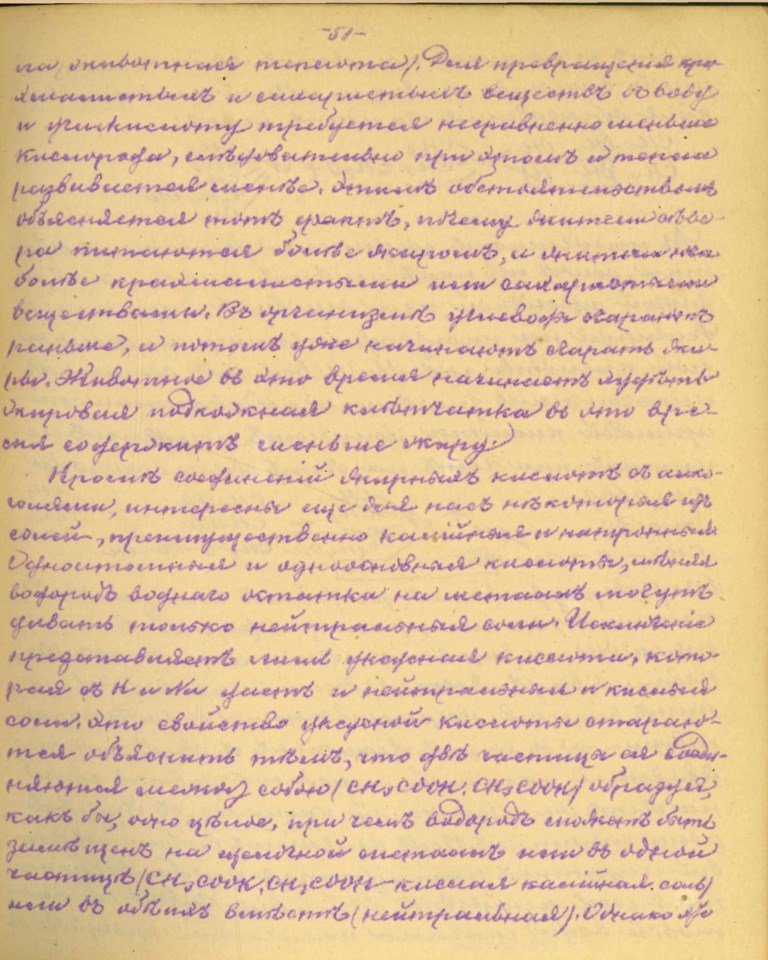 -51-
ла, животная теплота). Для превращенія кра-
хмалистыхъ и сахаристыхъ веществъ въ воду
и углекислоту требуется несравненно меньше
кислорода, слѣдовательно при этомъ и тепла
развивается менѣе. Этимъ обстоятельствомъ
объясняется тотъ фактъ, почему жители сѣве-
ра питаются болѣе жиромъ, а жители юга
болѣе крахмалистыми или сахаристыми
веществами. Въ организмѣ углеводы сгараютъ
раньше, и потомъ уже начинаютъ сгарать жи-
ры. Животное въ это время начинаетъ худѣть
жировая подкожная клѣтчатка въ это вре-
мя содержитъ меньше жиру.)
Кромѣ соединеній жирныхъ кислотъ съ алко-
голями, интересны еще для насъ нѣкоторыя изъ
солей, преимущественно калійныя и натронныя.
Одноатомныя и одноосновныя кислоты, мѣняя
водородъ воднаго остатка на металлъ могутъ
давать только нейтральныя соли. Исключеніе
представляетъ лишь уксусная кислота, кото-
рая съ K и Na даетъ и нейтральныя и кислыя
соли. Это свойство уксусной кислоты стараю-
тся объяснить тѣмъ, что двѣ частицы ея соеди-
няются между собою (CH₃COOH, CH₃COOH) образуя,
какъ бы, одно цѣлое, при чемъ водородъ можетъ быть
замѣщенъ на щелочной металлъ или въ одной
частицѣ (CH₃COOK, CH₃COOH - кислая калійная соль)
или въ обѣихъ вмѣстѣ (нейтральная). Однако